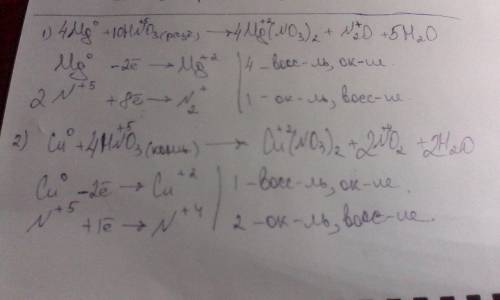 1) 4Mg⁰ + 10HN⁺⁵O₃(разб) → 4Mg⁺²(NO₃)₂ + N₂⁺O + 5H₂O
Mg⁰ -2ē → Mg⁺² | 4 - восс-ль, ок-ие.
2N⁺⁵ +8ē → N₂⁺ | 1 - ок-ль, восс-ие.
2) Cu⁰ + 4HN⁺⁵O₃(конц) → Cu⁺²(NO₃)₂ + 2N⁺⁴O₂ + 2H₂O
Cu⁰ -2ē → Cu⁺² | 1 - восс-ль, ок-ие.
N⁺⁵ +1ē → N⁺⁴ | 2 - ок-ль, восс-ие.